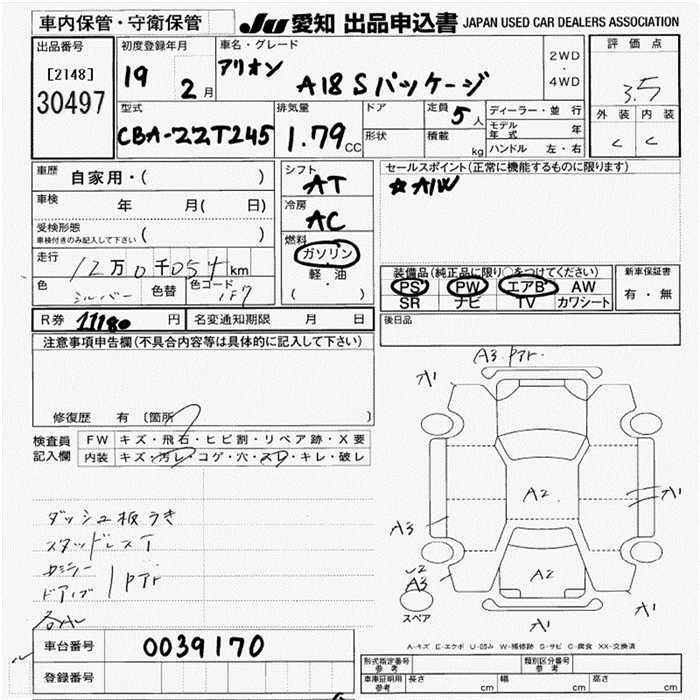 車内保管・守衛保管
JU 愛知 出品申込書 JAPAN USED CAR DEALERS ASSOCIATION
出品番号
[2148]
30497
初度登録年月
19 2月
車名・グレード
アリオン A18 Sパッケージ
2WD
・
4WD
評価点
3.5
外装 内装
C C
型式
CBA-ZZT245
排気量
1.79 CC
ドア
形状
定員 5人
積載 kg
ディーラー・並行
モデル年式 年
ハンドル 左・右
車歴 自家用・( )
車検 年 月( 日)
受検形態
車検付きのみ記入して下さい ( )
走行 12万0千054km
色 シルバー 色替 色コード 1F7
シフト
AT
冷房
AC
燃料
ガソリン
軽・油
( )
セールスポイント(正常に機能するものに限ります)
☆A/W
装備品(純正品に限り○をつけてください)
PS PW エアB AW
SR ナビ TV カワシート
新車保証書
有・無
R券 11180 円 名変通知期限 月 日
後日品
注意事項申告欄(不具合内容等は具体的に記入して下さい)
修復歴 有 〔箇所 〕
検査員記入欄
FW キズ・飛石・ヒビ割・リペア跡・X要
内装 キズ・汚レ・コゲ・穴・スレ・キレ・破レ
ダッシュ板うき
スタッドレスT
ドアバイブ 1Ptr
A3 Ptr.
A1
A2
A1
A3
U2
A3
A2
A1
A1
スペア
A-キズ E-エクボ U-凹み W-補修跡 S-サビ C-腐食 XX-交換済
車台番号 0039170
登録番号
形式指定番号 参考
類別区分番号 参考
車庫証明 参考 長さ cm 幅 cm 高さ cm